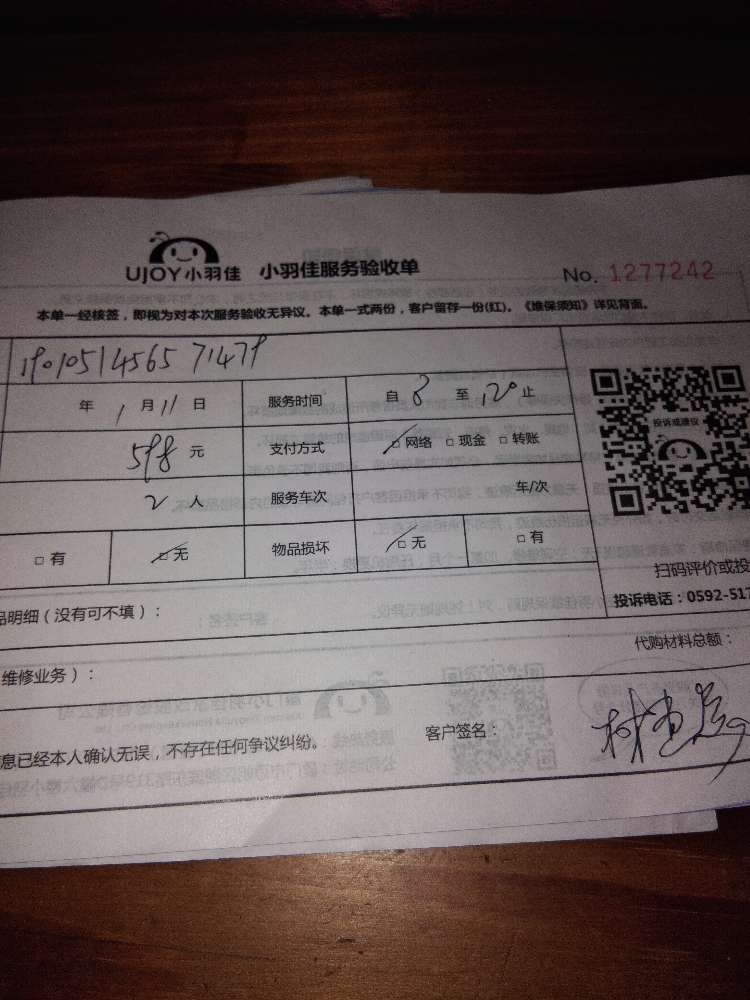 UJOY小羽佳 小羽佳服务验收单 No. 1277242
本单一经核签，即视为对本次服务验收无异议。本单一式两份，客户留存一份(红)。《维保须知》详见背面。
190105145657 1479
年 1 月 11 日 服务时间 自 8 至 12° 止
598 元 支付方式 □ 网络 □ 现金 □ 转账
2 人 服务车次 年/次
□ 有 □ 无 物品损坏 □ 无 □ 有
投诉或建议
扫码评价或投
投诉电话：0592-517
品明细（没有可不填）：
代购材料总额：
维修业务）：
息已经本人确认无误，不存在任何争议纠纷。 客户签名：